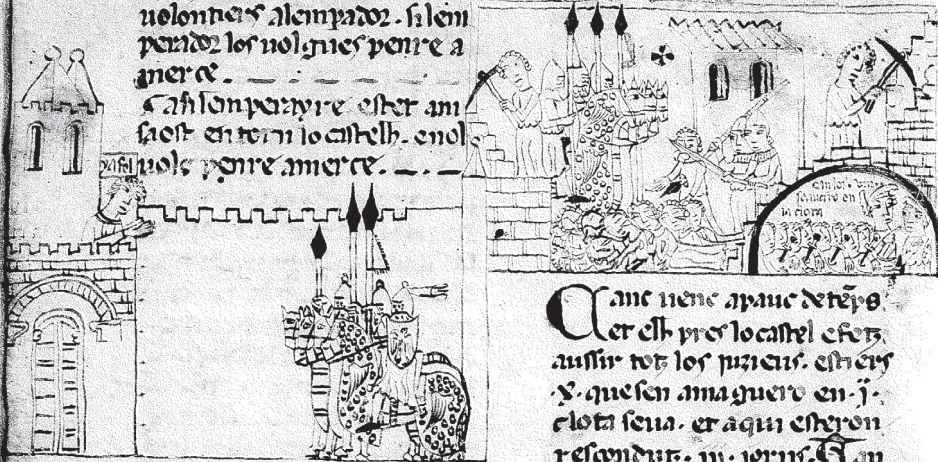 uolontiers alempador · silem
perador los uolgues penre a
merce ·
Cassi lemperayre estet am
sa ost en torn lo castelh · e nol
uols penre amerce ·
Cant uenc apauc detēps
et elh pres lo castel efetz
aussir totz los juzieus · estiers
·x· quesen amaguero en ·j̄·
clota seua · et aqui esteron
resconduz · iij · iorns · Can